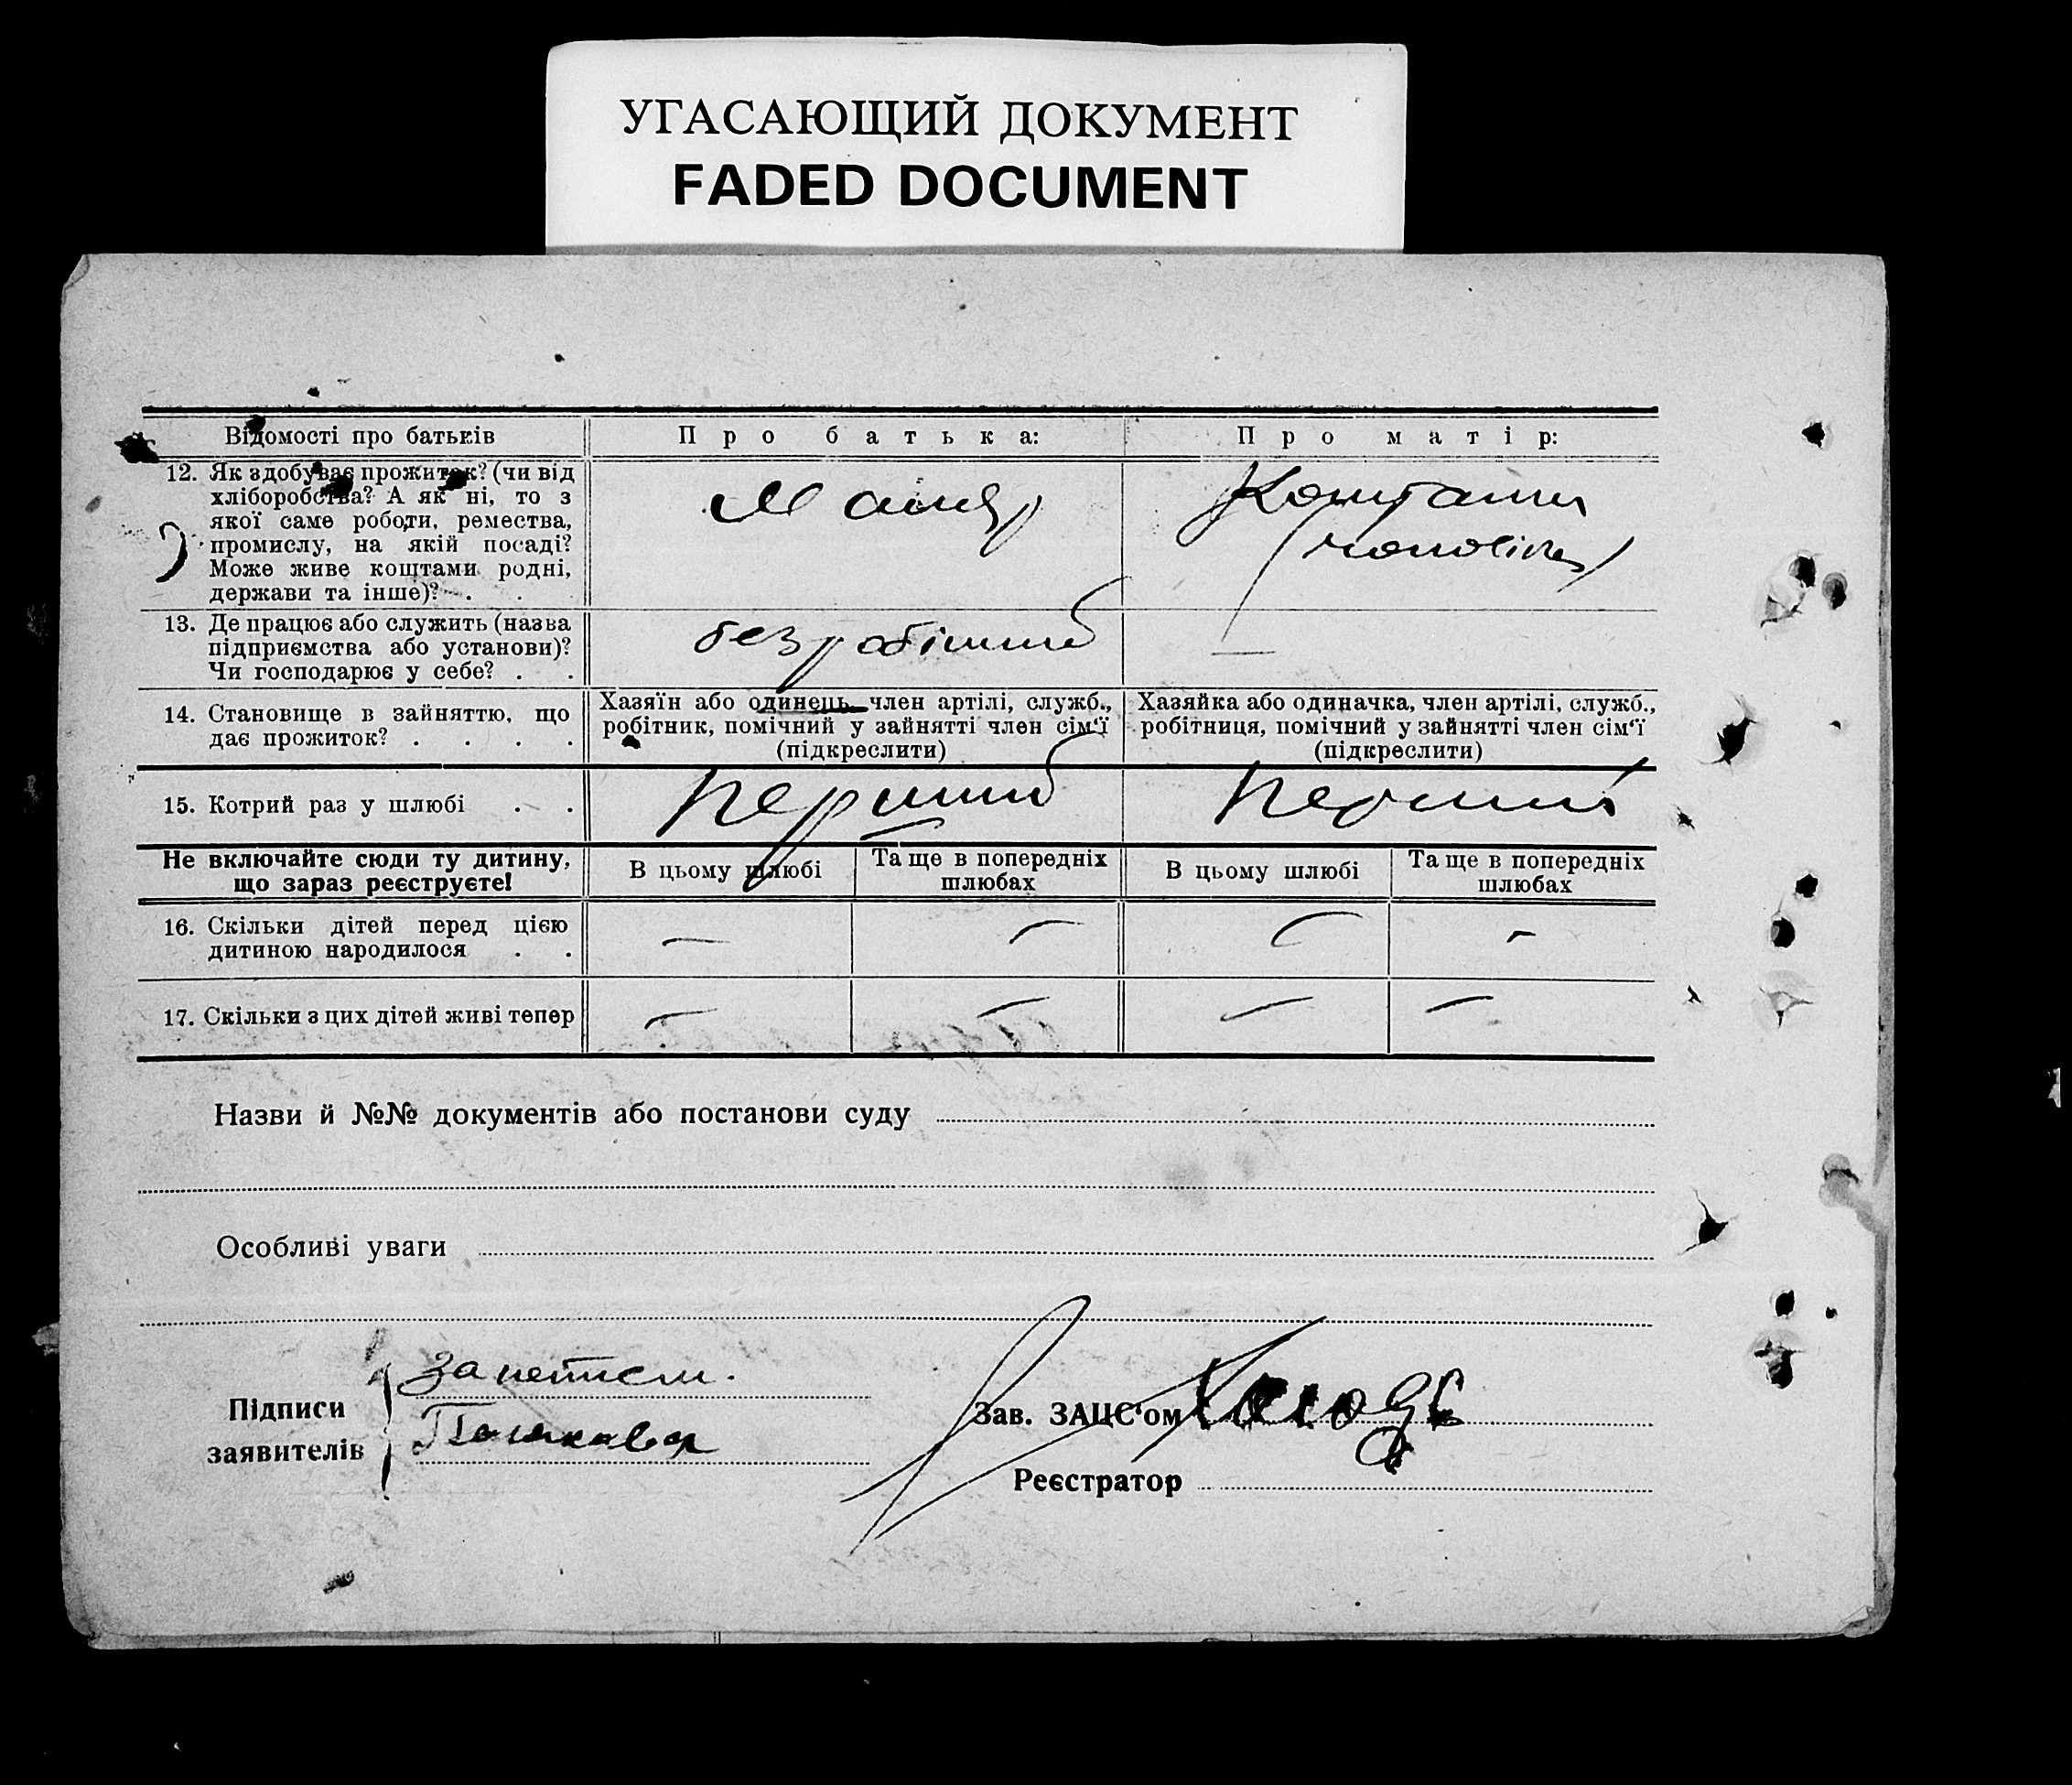 УГАСАЮЩИЙ ДОКУМЕНТ
FADED DOCUMENT
Відомості про батьків
Про батька:
Про матір:
12. Як здобуває прожиток? (чи від
хліборобства? А як ні, то з
якої саме роботи, ремества,
промислу, на якій посаді?
Може живе коштами родні,
держави та інше)? . .
Маляр
Коштами
(чоловіка)
13. Де працює або служить (назва
підприємства або установи)?
Чи господарює у себе? . .
безробітний
—
14. Становище в зайняттю, що
дає прожиток? . . . .
Хазяїн або одинець, член артілі, служб.,
робітник, помічний у зайнятті член сім'ї
(підкреслити)
Хазяйка або одиначка, член артілі, служб.,
робітниця, помічний у зайнятті член сім'ї
(підкреслити)
15. Котрий раз у шлюбі . .
Перший
Перший
Не включайте сюди ту дитину,
що зараз реєструєте!
В цьому шлюбі
Та ще в попередніх
шлюбах
В цьому шлюбі
Та ще в попередніх
шлюбах
16. Скільки дітей перед цією
дитиною народилося . .
— — — —
17. Скільки з цих дітей живі тепер
— — — —
Назви й №№ документів або постанови суду
Особливі уваги
Підписи
заявителів
Зав. ЗАЦС'ом
Реєстратор